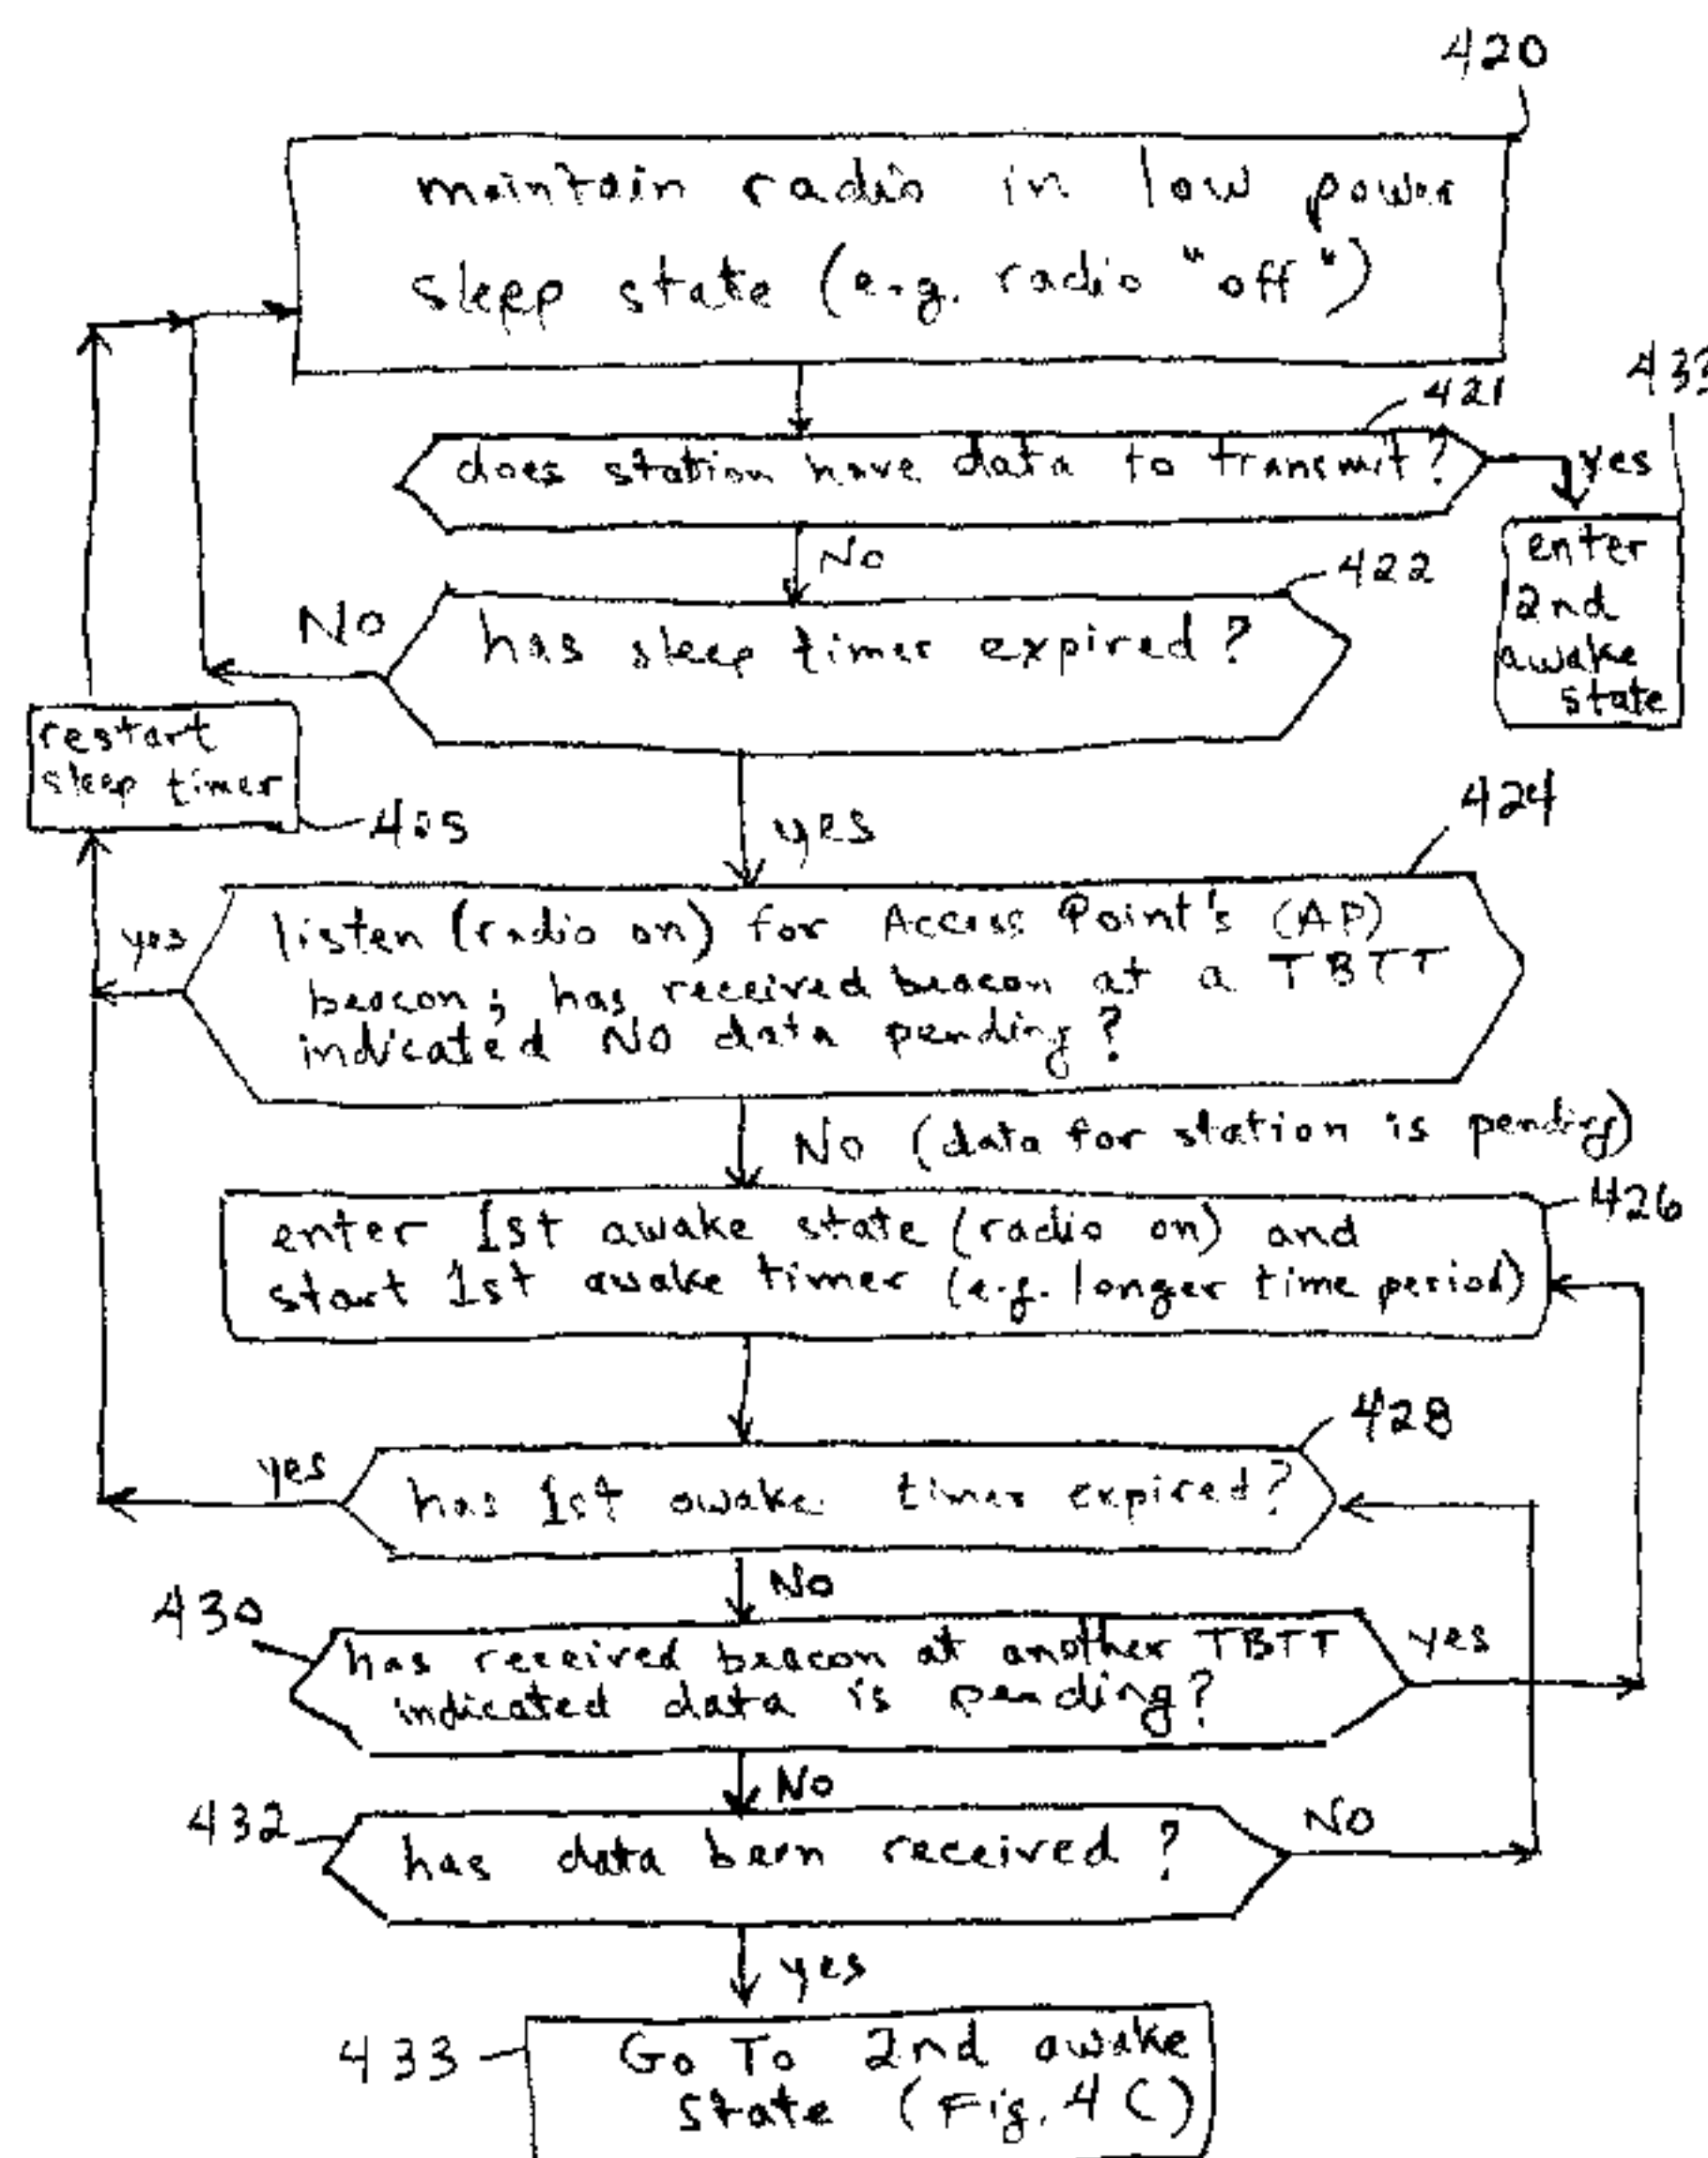 420
maintain radio in low power
sleep state (e.g. radio "off")
433
421
does station have data to transmit?
yes
enter
2nd
awake
state
No
422
No
has sleep timer expired?
restart
sleep timer
405
yes
424
yes
listen (radio on) for Access Point's (AP)
beacon; has received beacon at a TBTT
indicated NO data pending?
No (data for station is pending)
426
enter 1st awake state (radio on) and
start 1st awake timer (e.g. longer time period)
428
yes
has 1st awake timer expired?
No
430
has received beacon at another TBTT
indicated data is pending?
yes
No
432
has data been received?
No
yes
433
Go To 2nd awake
state (Fig. 4C)